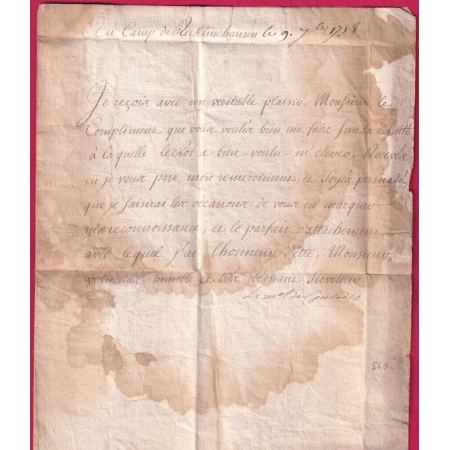 Au Camp de Recklinghausen le 9. 7bre 1758
Je reçois avec un veritable plaisir, Monsieur le
Compliment que vous voulés bien me faire sur la dignité
à la quelle le Roi a bien voulu m'elever. Recevés
en je vous prie mon remerciment, et Soyés persuadé
que je saisirai les occasions de vous en marquer
ma reconnoissance, et le parfait attachement
avec lequel j'ai l'honneur d'être, Monsieur,
votre très humble et très obéissant Serviteur
Le mal de Contades
860